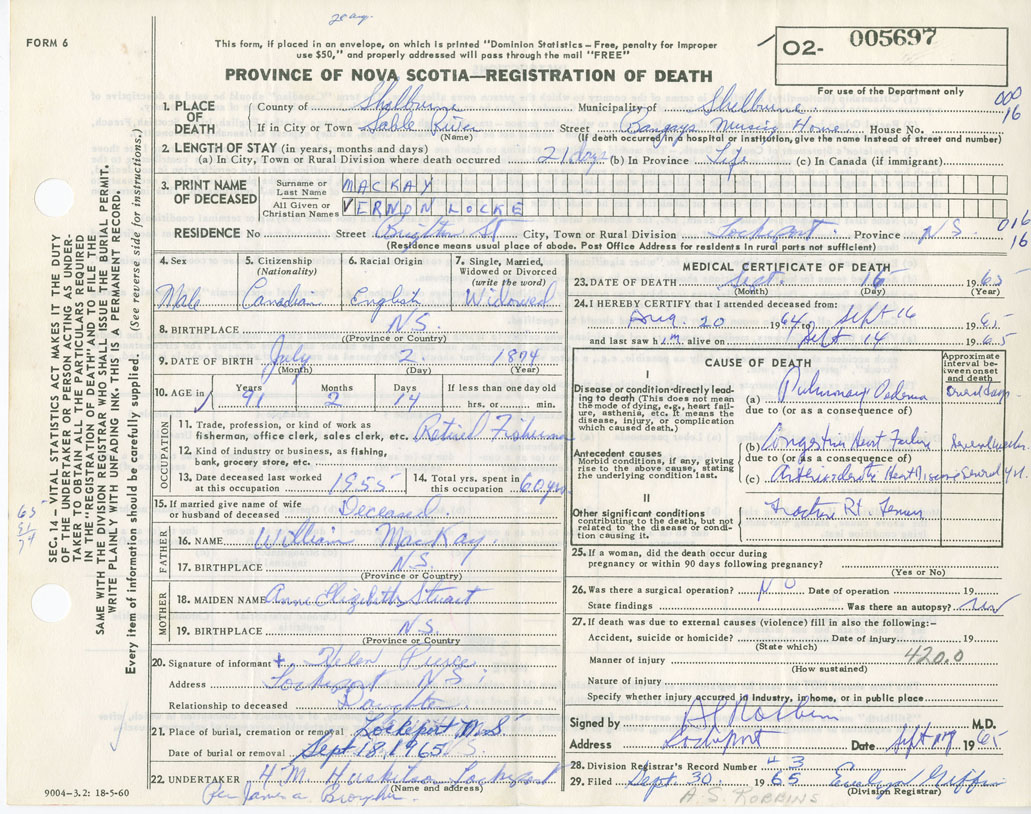 FORM 6
This form, if placed in an envelope, on which is printed "Dominion Statistics – Free, penalty for Improper
use $50," and properly addressed will pass through the mail "FREE"
PROVINCE OF NOVA SCOTIA—REGISTRATION OF DEATH
O2- 005697
For use of the Department only
000
16
1. PLACE OF DEATH
County of Shelburne Municipality of Shelburne
If in City or Town Sable River Street Nursing Home House No.
(Name) (If death occurred in a hospital or institution, give the name instead of street and number)
2. LENGTH OF STAY (in years, months and days)
(a) In City, Town or Rural Division where death occurred 21 days (b) In Province Life (c) In Canada (if immigrant)
3. PRINT NAME OF DECEASED
Surname or Last Name MACKAY
All Given or Christian Names VERNON LOCKE
RESIDENCE No Street Brighton St City, Town or Rural Division Lockeport Province N S
(Residence means usual place of abode. Post Office Address for residents in rural parts not sufficient)
016
16
4. Sex
Male
5. Citizenship
(Nationality)
Canadian
6. Racial Origin
English
7. Single, Married, Widowed or Divorced
(write the word)
Widowed
8. BIRTHPLACE N.S.
(Province or Country)
9. DATE OF BIRTH July 2 1874
(Month) (Day) (Year)
10. AGE in Years 91 Months 2 Days 14 If less than one day old
hrs. or min.
OCCUPATION
11. Trade, profession, or kind of work as
fisherman, office clerk, sales clerk, etc. Retired Fisherman
12. Kind of industry or business, as fishing,
bank, grocery store, etc.
13. Date deceased last worked
at this occupation 1955
14. Total yrs. spent in
this occupation 60 yrs
15. If married give name of wife
or husband of deceased Deceased
FATHER
16. NAME William MacKay
17. BIRTHPLACE N.S.
(Province or Country)
MOTHER
18. MAIDEN NAME Anne Elizabeth Stuart
19. BIRTHPLACE N.S.
(Province or Country)
20. Signature of informant + Helen Pierce
Address Lockeport N S
Relationship to deceased Daughter
21. Place of burial, cremation or removal Lockeport N.S.
Date of burial or removal Sept 18, 1965
22. UNDERTAKER H M Huskilson Lockeport
(Name and address)
Per James A.
9004-3.2: 18-5-60
MEDICAL CERTIFICATE OF DEATH
23. DATE OF DEATH Sept. 16 1965
(Month) (Day) (Year)
24. I HEREBY CERTIFY that I attended deceased from:
Aug. 20 1964 to Sept 16 1965
and last saw him alive on Sept 14 1965
CAUSE OF DEATH
Approximate interval between onset and death
I
Disease or condition directly leading to death (This does not mean the mode of dying, e.g., heart failure, asthenia, etc. It means the disease, injury, or complication which caused death.)
(a) Pulmonary Oedema
due to (or as a consequence of)
Antecedent causes
Morbid conditions, if any, giving rise to the above cause, stating the underlying condition last.
(b) Congestive Heart Failure Several weeks
due to (or as a consequence of)
(c) Arteriosclerotic Heart Disease Several yrs
II
Other significant conditions
contributing to the death, but not related to the disease or condition causing it.
Fracture Rt. Femur
25. If a woman, did the death occur during
pregnancy or within 90 days following pregnancy?
(Yes or No)
26. Was there a surgical operation? NO Date of operation 19
State findings Was there an autopsy?
27. If death was due to external causes (violence) fill in also the following:–
Accident, suicide or homicide? Date of injury 19
(State which)
420.0
Manner of injury
(How sustained)
Nature of injury
Specify whether injury occurred in industry, in home, or in public place
Signed by Robbins M.D.
Address Lockeport Date Sept 1965
28. Division Registrar's Record Number 43
29. Filed Sept. 30 1965 Evelyn Griffin
(Division Registrar)
A. S. ROBBINS
SEC. 14 – VITAL STATISTICS ACT MAKES IT THE DUTY
OF THE UNDERTAKER OR PERSON ACTING AS UNDER-
TAKER TO OBTAIN ALL THE PARTICULARS REQUIRED
IN THE "REGISTRATION OF DEATH" AND TO FILE THE
SAME WITH THE DIVISION REGISTRAR WHO SHALL ISSUE THE BURIAL PERMIT.
WRITE PLAINLY WITH UNFADING INK. THIS IS A PERMANENT RECORD.
Every item of information should be carefully supplied. (See reverse side for instructions.)
65
91
74